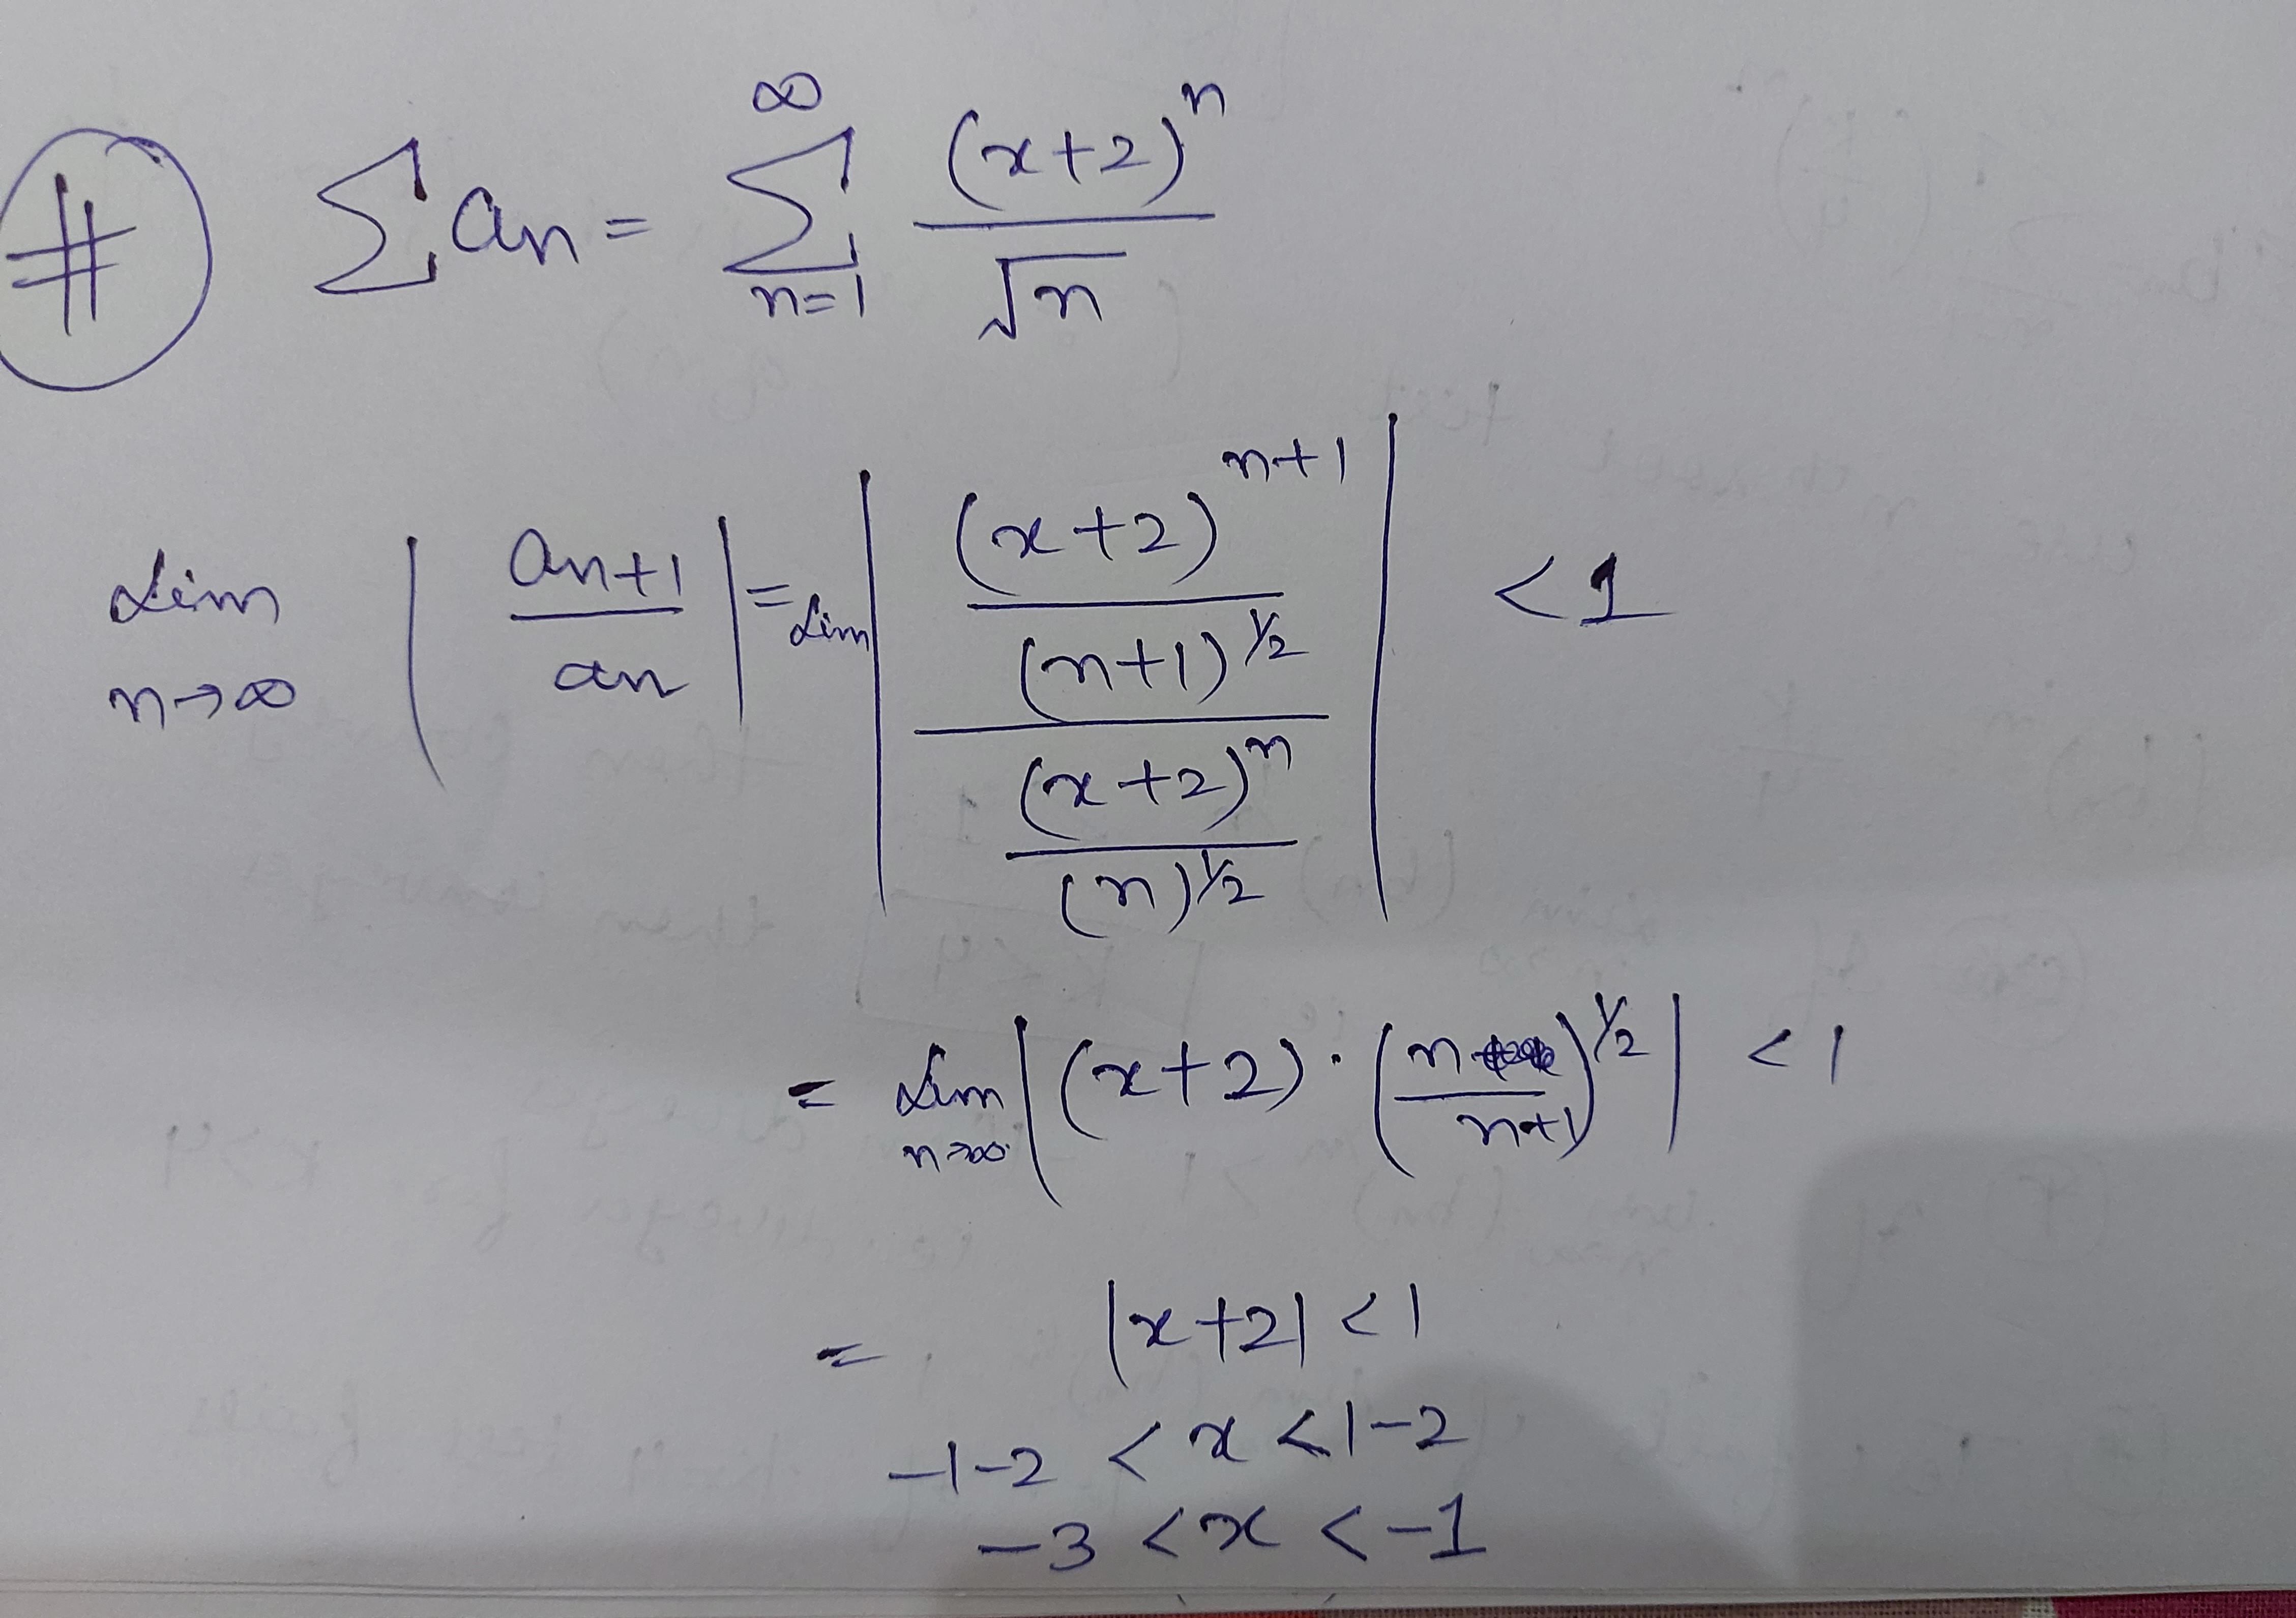 # ∑an = ∞∑n=1 (x+2)^n / √n
Lim n→∞ | an+1 / an | = Lim | ((x+2)^(n+1) / (n+1)^(1/2)) / ((x+2)^n / (n)^(1/2)) | < 1
= Lim n→∞ | (x+2) · (n / n+1)^(1/2) | < 1
= |x+2| < 1
-1-2 < x < 1-2
-3 < x < -1